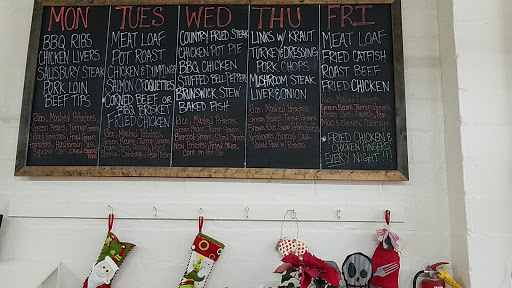 MON
BBQ RIBS
CHICKEN LIVERS
SALISBURY STEAK
PORK LOIN
BEEF TIPS
Rice, Mashed Potatoes
Green Beans, Turnip Greens
TUES
MEAT LOAF
POT ROAST
CHICKEN & DUMPLINGS
SALMON CROQUETTES
CORNED BEEF OR
BBQ BRISKET
FRIED CHICKEN
Rice, Mashed Potatoes
Green Beans, Turnip Greens
WED
COUNTRY FRIED STEAK
CHICKEN POT PIE
BBQ CHICKEN
STUFFED BELL PEPPERS
BRUNSWICK STEW
BAKED FISH
Rice, Mashed Potatoes
Green Beans, Turnip Greens
Corn on the Cob
THU
LINKS W/ KRAUT
TURKEY & DRESSING
PORK CHOPS
MUSHROOM STEAK
LIVER & ONION
Rice, Mashed Potatoes
Green Beans, Turnip Greens
FRI
MEAT LOAF
FRIED CATFISH
ROAST BEEF
FRIED CHICKEN
Rice, Mashed Potatoes
Green Beans, Turnip Greens
FRIED CHICKEN &
CHICKEN FINGERS
EVERY NIGHT!!!